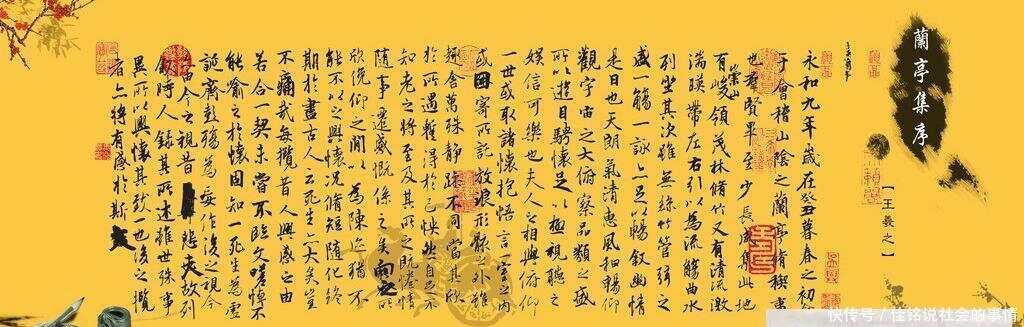 蘭亭集序
【王羲之】
永和九年歲在癸丑暮春之初
于會稽山陰之蘭亭脩稧事
也群賢畢至少長咸集此地
有崇山峻領茂林脩竹又有清流激
湍暎帶左右引以為流觴曲水
列坐其次雖無絲竹管弦之
盛一觴一詠亦足以暢敘幽情
是日也天朗氣清惠風和暢仰
觀宇宙之大俯察品類之盛
所以遊目騁懷足以極視聽之
娛信可樂也夫人之相與俯仰
一世或取諸懷抱悟言一室之內
或因寄所託放浪形骸之外雖
趣舍萬殊靜躁不同當其欣
於所遇蹔得於己怏然自足不
知老之將至及其所之既惓情
隨事遷感慨係之矣向之所
欣俛仰之閒以為陳迹猶不
能不以之興懷況脩短隨化終
期於盡古人云死生亦大矣豈
不痛哉每攬昔人興感之由
若合一契未嘗不臨文嗟悼不
能喻之於懷固知一死生為虛
誕齊彭殤為妄作後之視今
亦由今之視昔悲夫故列
敘時人錄其所述雖世殊事
異所以興懷其致一也後之攬
者亦將有感於斯文
快传号/佳铭说社会的事情